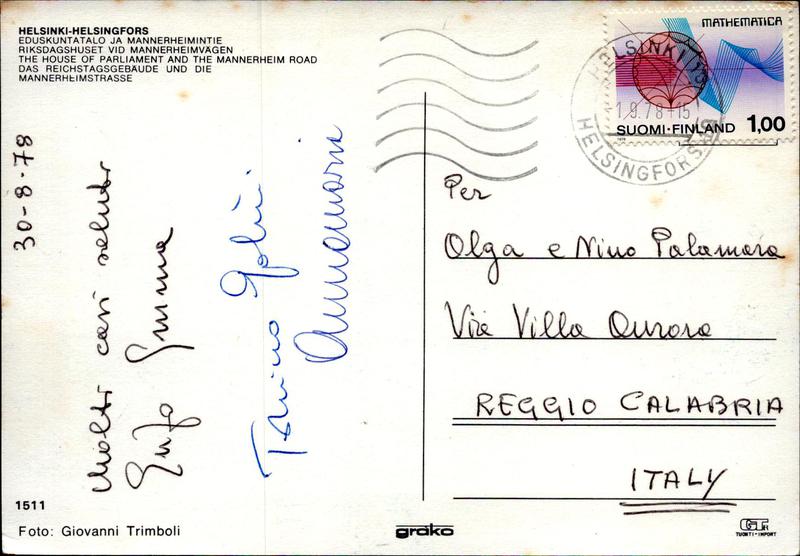 HELSINKI-HELSINGFORS
EDUSKUNTATALO JA MANNERHEIMINTIE
RIKSDAGSHUSET VID MANNERHEIMVÄGEN
THE HOUSE OF PARLIAMENT AND THE MANNERHEIM ROAD
DAS REICHSTAGSGEBÄUDE UND DIE
MANNERHEIMSTRASSE
30-8-78
Molti cari saluti
Enzo Emma
Annamaria
1511
Foto: Giovanni Trimboli
grako
MATHEMATICA
SUOMI·FINLAND 1,00
HELSINKI
1.9.78-15
HELSINGFORS
Per
Olga e Nino Palamara
Via Villa Aurora
REGGIO CALABRIA
ITALY
GT
TUONTI-IMPORT